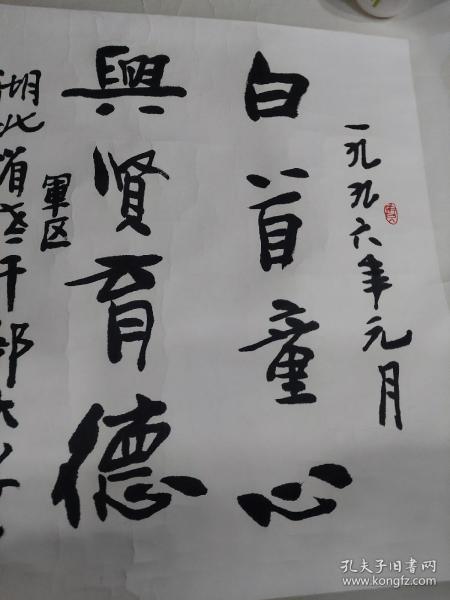 一九九六年元月
白首童心
興贤育德
軍区
湖北省老干部大学
孔夫子旧书网
www.kongfz.com